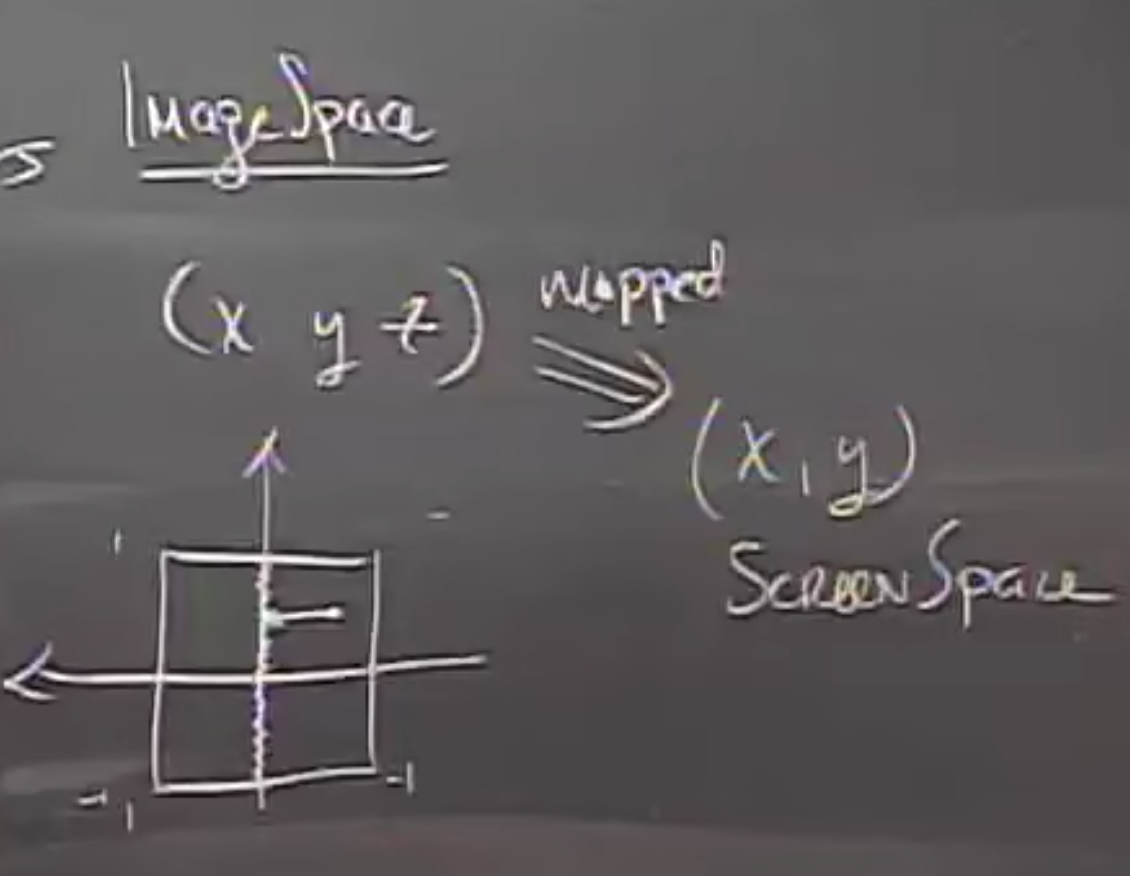 Image Space
(x y z) mapped
(x, y)
Screen Space
1
-1 -1